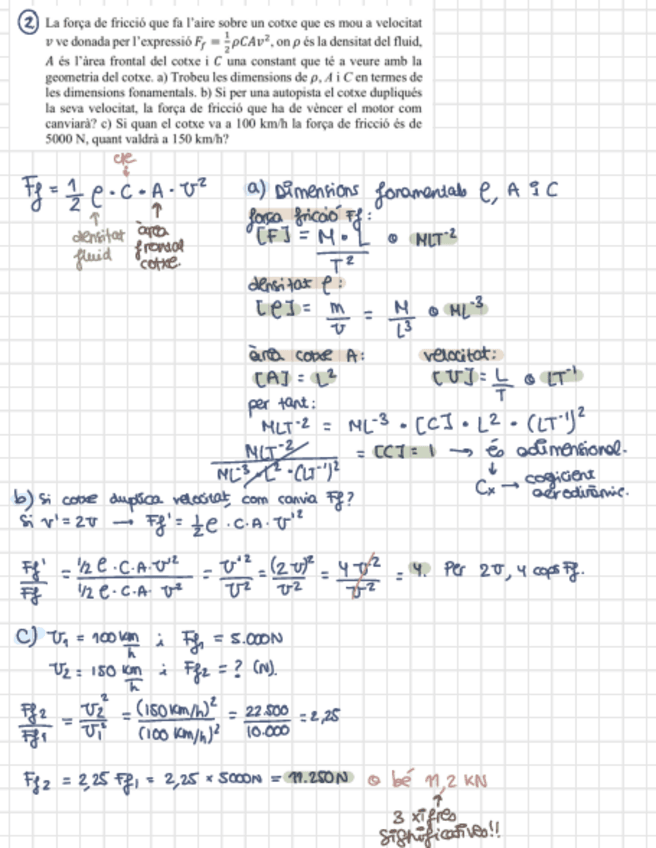 2 La força de fricció que fa l'aire sobre un cotxe que es mou a velocitat
v ve donada per l'expressió F_f = 1/2 ρCAv², on ρ és la densitat del fluid,
A és l'àrea frontal del cotxe i C una constant que té a veure amb la
geometria del cotxe. a) Trobeu les dimensions de ρ, A i C en termes de
les dimensions fonamentals. b) Si per una autopista el cotxe dupliqués
la seva velocitat, la força de fricció que ha de vèncer el motor com
canviarà? c) Si quan el cotxe va a 100 km/h la força de fricció és de
5000 N, quant valdrà a 150 km/h?
cte
↓
Ff = 1/2 ρ · C · A · v²
↑ densitat fluid
↑ àrea frontal cotxe
a) Dimensions fonamentals ρ, A i C
força fricció Ff:
[F] = M · L / T² o MLT⁻²
densitat ρ:
[ρ] = m/v = M/L³ o ML⁻³
àrea cotxe A:
[A] = L²
velocitat:
[v] = L/T o LT⁻¹
per tant:
MLT⁻² = ML⁻³ · [C] · L² · (LT⁻¹)²
MLT⁻² / ML⁻³ · L² · (LT⁻¹)² = [C] = 1 → és adimensional.
↓
Cx → coeficient
aerodinàmic.
b) Si cotxe duplica velocitat, com canvia Ff?
Si v' = 2v → Ff' = 1/2 ρ · C · A · v'²
Ff'/Ff = 1/2 ρ · C · A · v'² / 1/2 ρ · C · A · v² = v'²/v² = (2v)²/v² = 4v²/v² = 4. Per 2v, 4 cops Ff.
c) v₁ = 100 km/h i Ff₁ = 5.000N
v₂ = 150 km/h i Ff₂ = ? (N).
Ff₂/Ff₁ = v₂²/v₁² = (150 km/h)²/(100 km/h)² = 22.500/10.000 = 2,25
Ff₂ = 2,25 Ff₁ = 2,25 × 5000N = 11.250N o bé 11,2 KN
↑
3 xifres
significatives!!